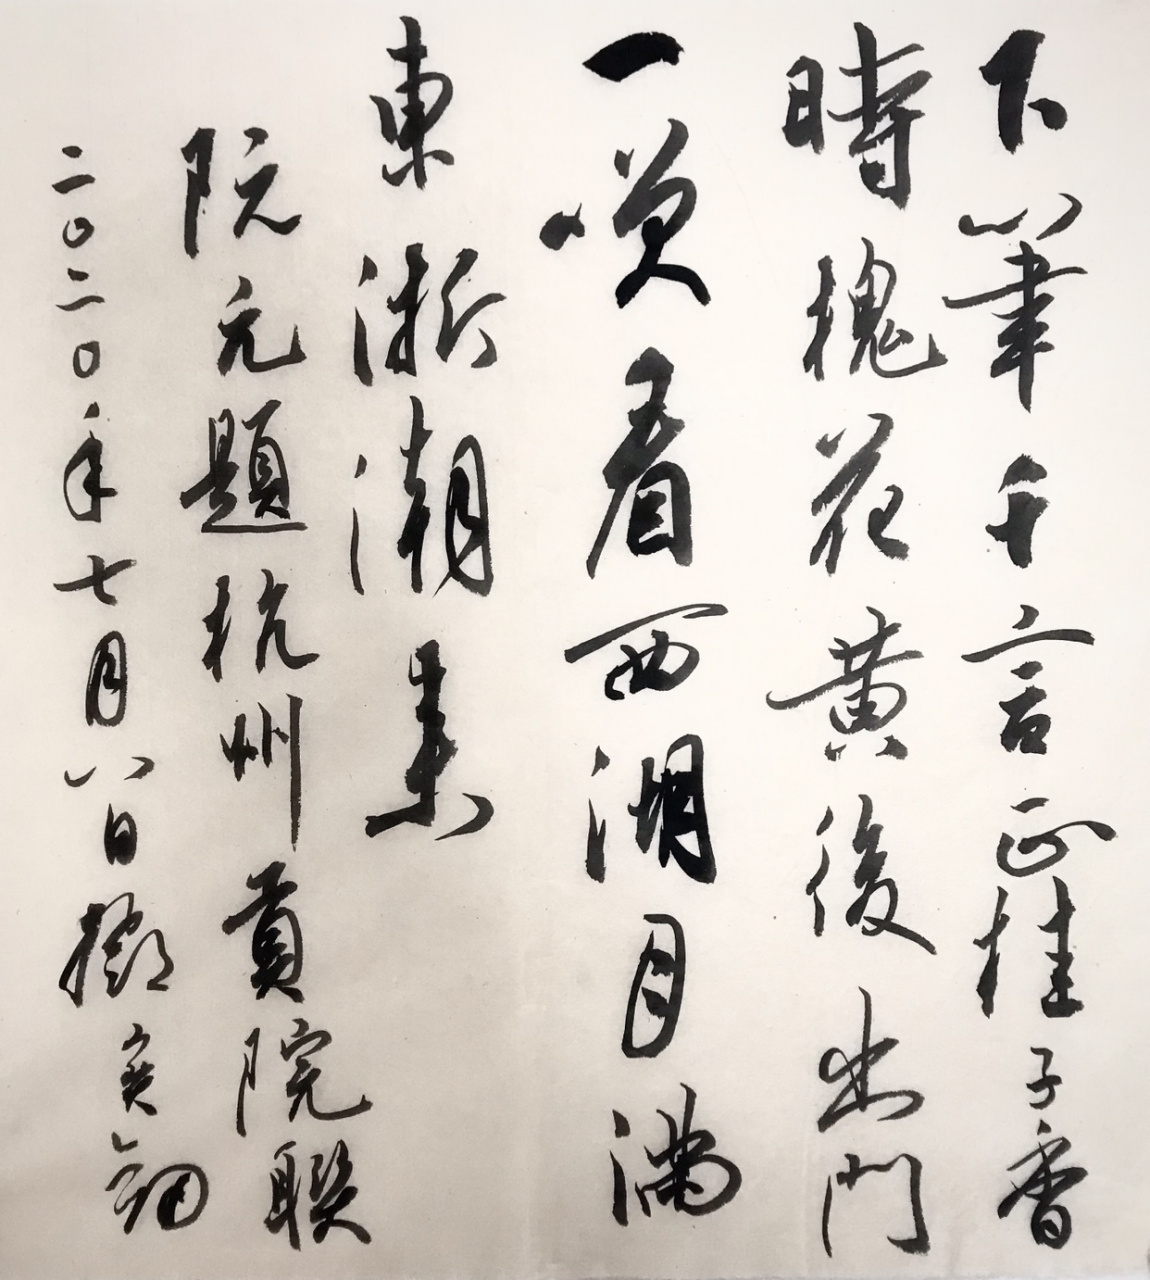 下筆千言正桂子香
時槐花黄後出門
一咲看西湖月滿
東浙潮來
阮元題杭州貢院聯
二〇二〇年七月八日